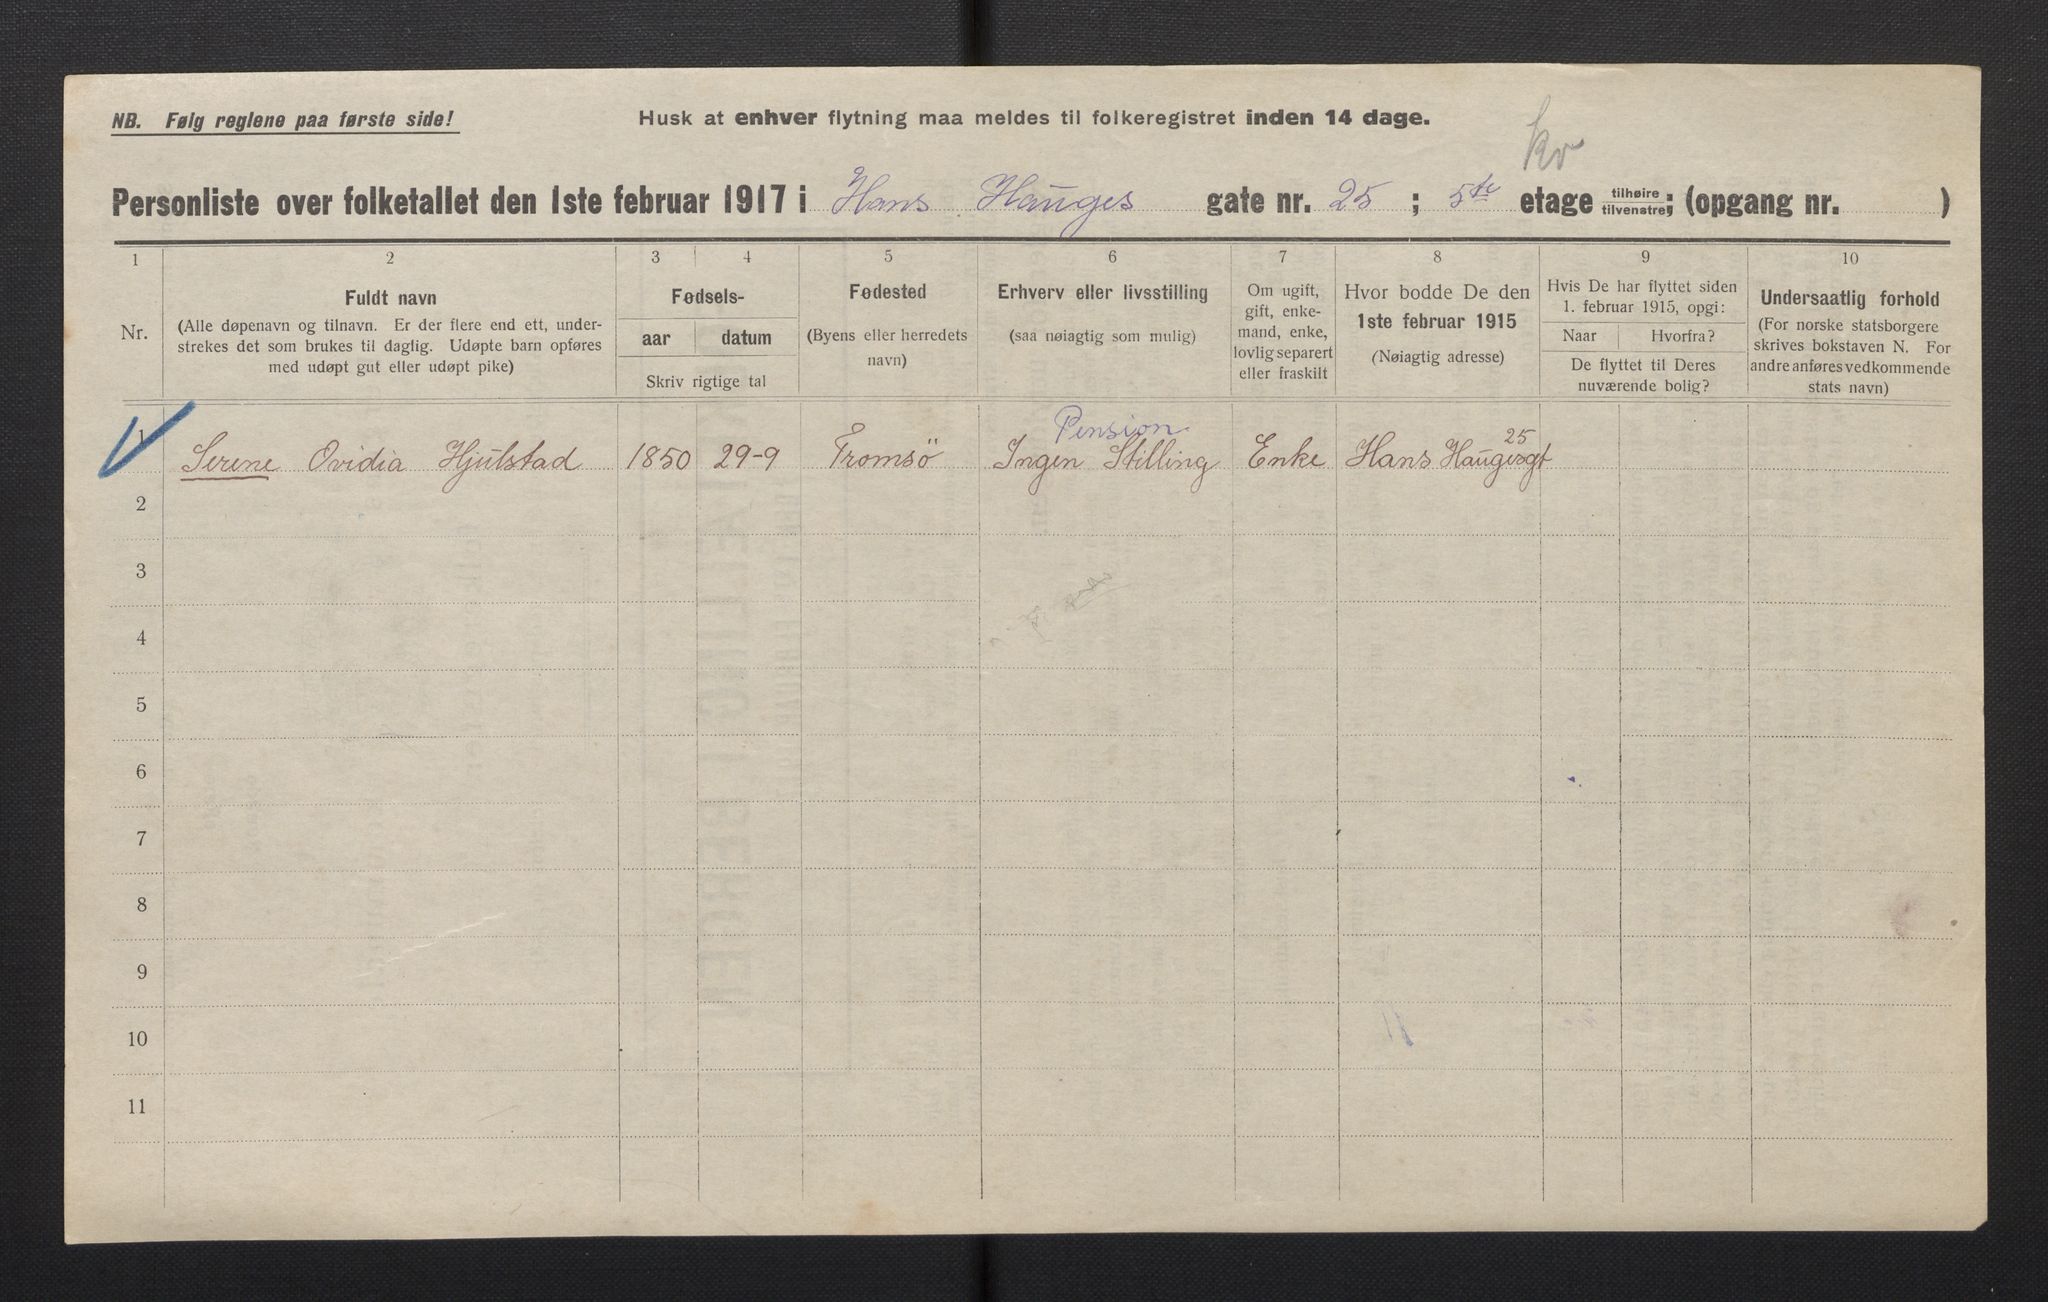 NB. Følg reglene paa første side! Husk at enhver flytning maa meldes til folkeregistret inden 14 dage.
kv
Personliste over folketallet den 1ste februar 1917 i Hans Hauges gate nr. 25 ; 5te etage tilhøire tilvenstre; (opgang nr. )
1 2 3 4 5 6 7 8 9 10
Nr.
Fuldt navn
(Alle døpenavn og tilnavn. Er der flere end ett, under-
strekes det som brukes til daglig. Udøpte barn opføres
med udøpt gut eller udøpt pike)
Fødsels-
aar datum
Skriv rigtige tal
Fødested
(Byens eller herredets
navn)
Erhverv eller livsstilling
(saa nøiagtig som mulig)
Om ugift,
gift, enke-
mand, enke,
lovlig separert
eller fraskilt
Hvor bodde De den
1ste februar 1915
(Nøiagtig adresse)
Hvis De har flyttet siden
1. februar 1915, opgi:
Naar Hvorfra?
De flyttet til Deres
nuværende bolig?
Undersaatlig forhold
(For norske statsborgere
skrives bokstaven N. For
andre anføres vedkommende
stats navn)
Pension
25
1 Serene Ovidia Hjulstad 1850 29-9 Tromsö Ingen Stilling Enke Hans Haugesgt
2
3
4
5
6
7
8
9
10
11